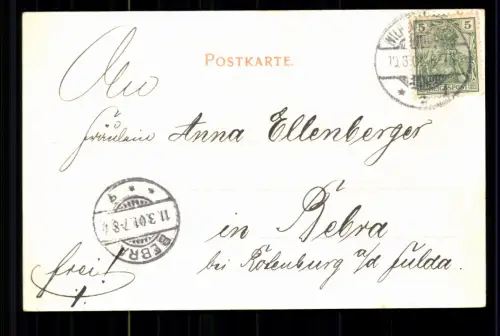 POSTKARTE.
5 5
10.3.0
An
Fräulein Anna Ellenberger
in Bebra
bei Rotenburg a/d Fulda.
frei!
BEBRA
11.3.01.7-8